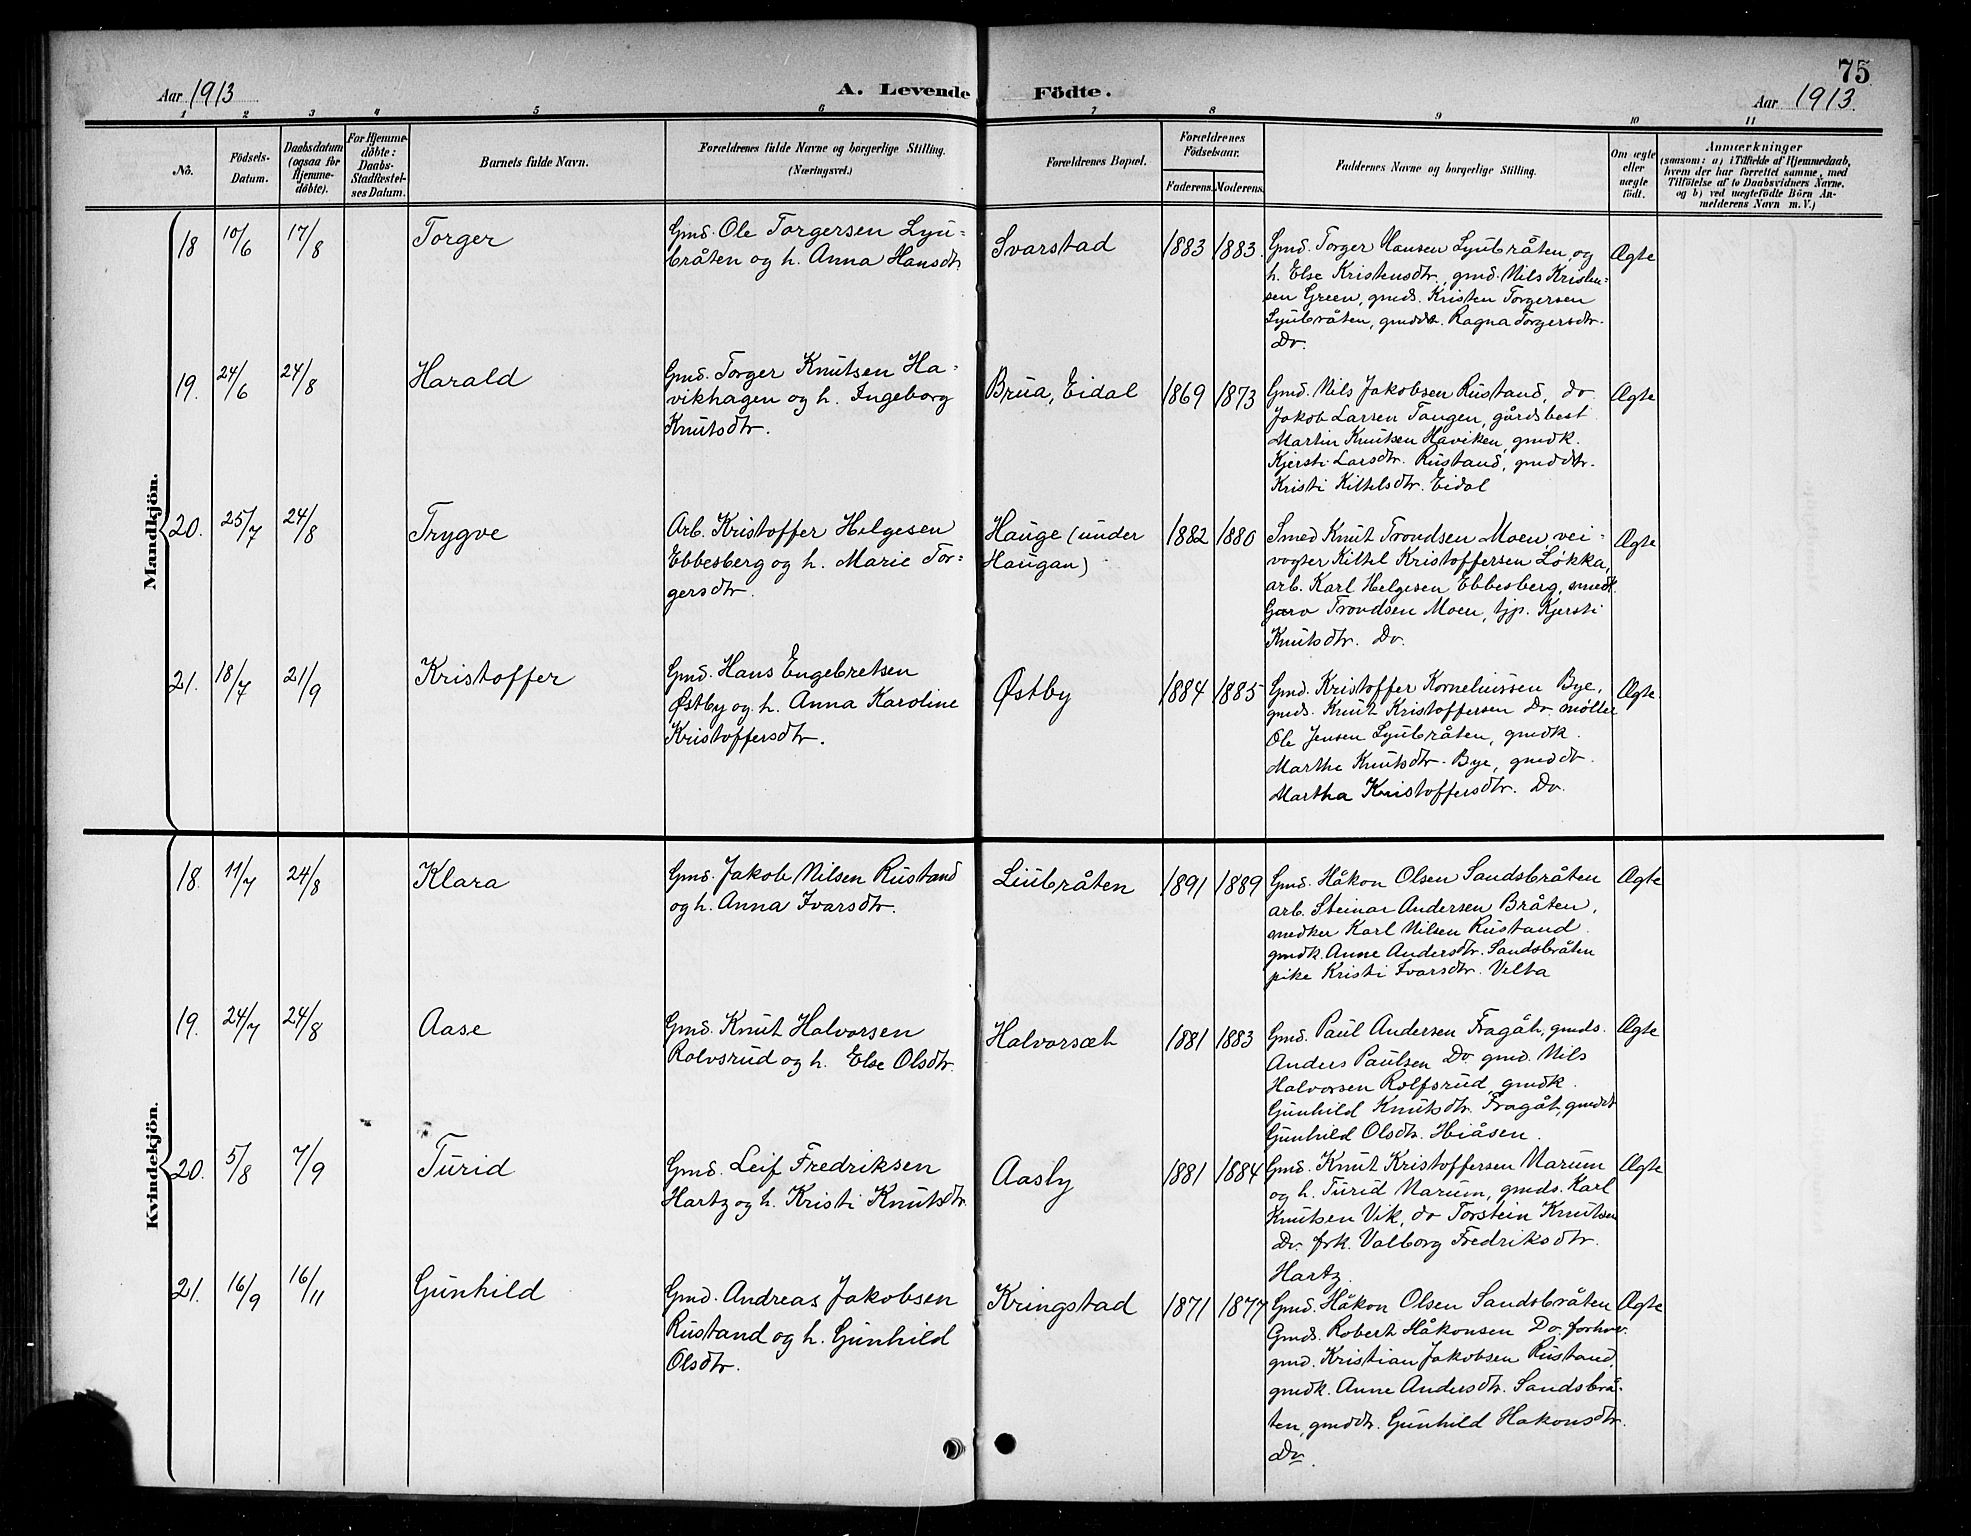 75
Aar 1913
A. Levende
Födte.
Aar 1913.
1 2 3 4 5 6 7 8 9 10 11
No.
Födsels-
Datum.
Daabsdatum
(ogsaa for
Hjemme-
döbte).
For Hjemme-
döbte:
Daabs-
Stadfæstel-
ses Datum.
Barnets fulde Navn.
Forældrenes fulde Navne og borgerlige Stilling.
(Næringsvei.)
Forældrenes Bopæl.
Forældrenes
Födselsaar.
Faderens. Moderens.
Faddernes Navne og borgerlige Stilling.
Om ægte
eller
uægte
födt.
Anmærkninger
(saasom: a) i Tilfælde af Hjemmedaab,
hvem der har forrettet samme, med
Tilföielse af to Daabsvidners Navne.
og b) ved uægtefödte Börn An-
melderens Navn m. V.)
Mandkjön.
18 10/6 17/8 Torger
Gmd. Ole Torgersen Lju-
bråten og h. Anna Hansdtr
Svarstad 1883 1883.
Gmd. Torger Hansen Ljubråten, og
h. Else Kristensdtr., gmd. Nils Kristen-
sen Green, gmds. Kristen Torgersen
Ljubråten, gmddt. Ragna Torgersdtr.
Do.
Ægte
19. 24/6 24/8 Harald
Gmd. Torger Knutsen Ha-
vikhagen og h. Ingeborg
Knutsdtr.
Brua, Eidal 1869 1873
Gmd. Nils Jakobsen Rustand, do
Jakob Larsen Tangen, gårdsbest.
Martin Knutsen Haviken, gmdk.
Kjersti Larsdtr. Rustand, gmddtr.
Kristi Kittelsdtr. Eidal
Ægte
20. 25/7 24/8 Trygve
Arb. Kristoffer Helgesen
Ebbesberg og h. Marie Tor-
gersdtr.
Hauge (under
Haugan)
1882 1880
Smed Knut Trondsen Moen vei-
vogter Kittel Kristoffersen Løkka,
arb. Karl Helgesen Ebbesberg, smedk.
Guro Trondsen Moen, tjp. Kjersti
Knutsdtr. Do.
Ægte
21. 18/7 21/9 Kristoffer
Gmd. Hans Engebretsen
Østby og h. Anna Karoline
Kristoffersdtr.
Østby 1884 1885
Gmd. Kristoffer Korneliussen Bye,
gmds. Knut Kristoffersen Do. møller
Ole Jensen Ljubråten, gmdk.
Marthe Knutsdtr. Bye, gmddt.
Martha Kristoffersdtr. Do.
Ægte
Kvindekjön.
18. 11/7 24/8 Klara
Gmd. Jakob Nilsen Rustand
og h. Anna Ivarsdtr.
Liubråten 1891 1889
Gmd. Håkon Olsen Sandsbråten
arb. Steinar Andersen Bråten,
snedker Karl Nilsen Rustand
gmdk. Anne Andersdtr. Sandsbråten
pike Kristi Ivarsdtr. Velta
Ægte
19. 24/7 24/8 Aase
Gmd. Knut Halvorsen
Rolvsrud og h. Else Olsdtr.
Halvorsæt 1881 1883
Gmd. Paul Andersen Fragåt, gmds.
Anders Paulsen Do gmd. Nils
Halvorsen Rolfsrud, gmdk.
Gunhild Knutsdtr. Fragåt, gmddt
Gunhild Olsdtr. Hiåsen.
Ægte
20. 5/8 7/9 Turid
Gmd. Leif Fredriksen
Hartz og h. Kristi Knutsdtr.
Aasly 1881 1884
Gmd. Knut Kristoffersen Narum
og h. Turid Narum, gmds. Karl
Knutsen Vik, do Torstein Knutsen
Do. frk. Valborg Fredriksdtr.
Hartz.
Ægte
21. 16/9 16/11 Gunhild
Gmd. Andreas Jakobsen
Rustand og h. Gunhild
Olsdtr.
Kringstad 1871 1877
Gmd. Håkon Olsen Sandsbråten
Gmds. Robert Håkonsen Do, forhv.
gmd. Kristian Jakobsen Rustand,
gmdk. Anne Andersdtr. Sandsbrå-
ten, gmddtr. Gunhild Hakonsdtr.
Do.
Ægte